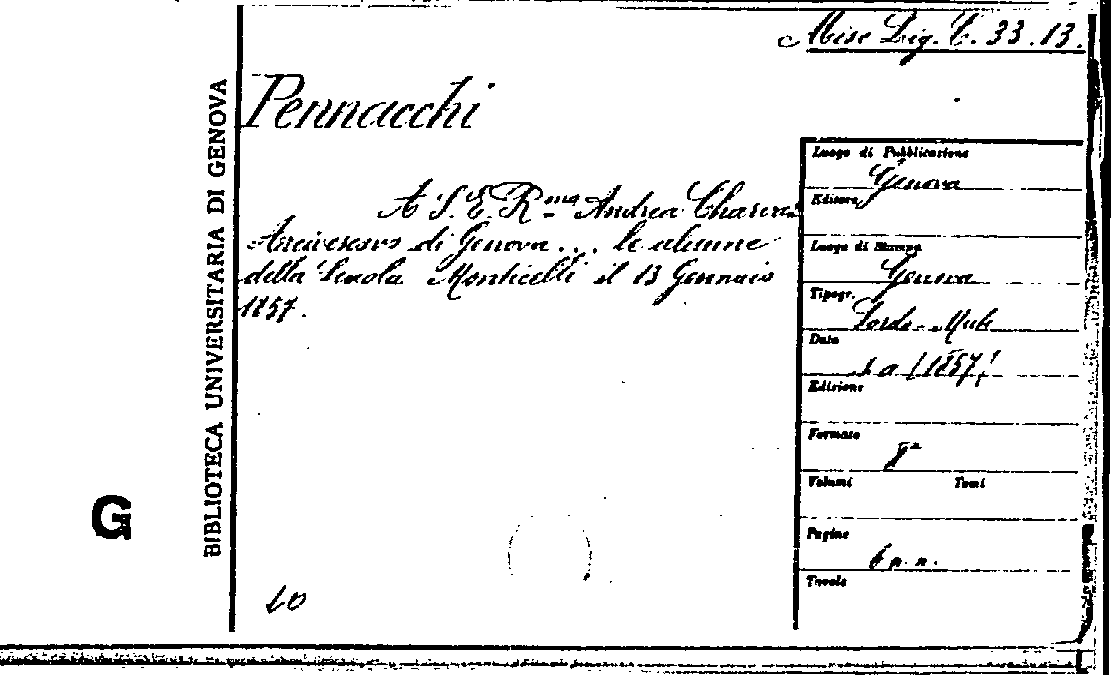 Misc Lig. C. 33.13.
Pennacchi
A S. E. R.ma Andrea Charvaz
Arcivescovo di Genova... le alunne
della Scuola Monticelli il 13 Gennaio
1857.
BIBLIOTECA UNIVERSITARIA DI GENOVA
G
Luogo di Pubblicazione
Genova
Editore
Luogo di Stampa
Genova
Tipogr.
Sordo-Muti
Data
s. a. [1857]
Edizione
Formato
8°
Volumi Tomi
Pagine
6 n. n.
Tavole